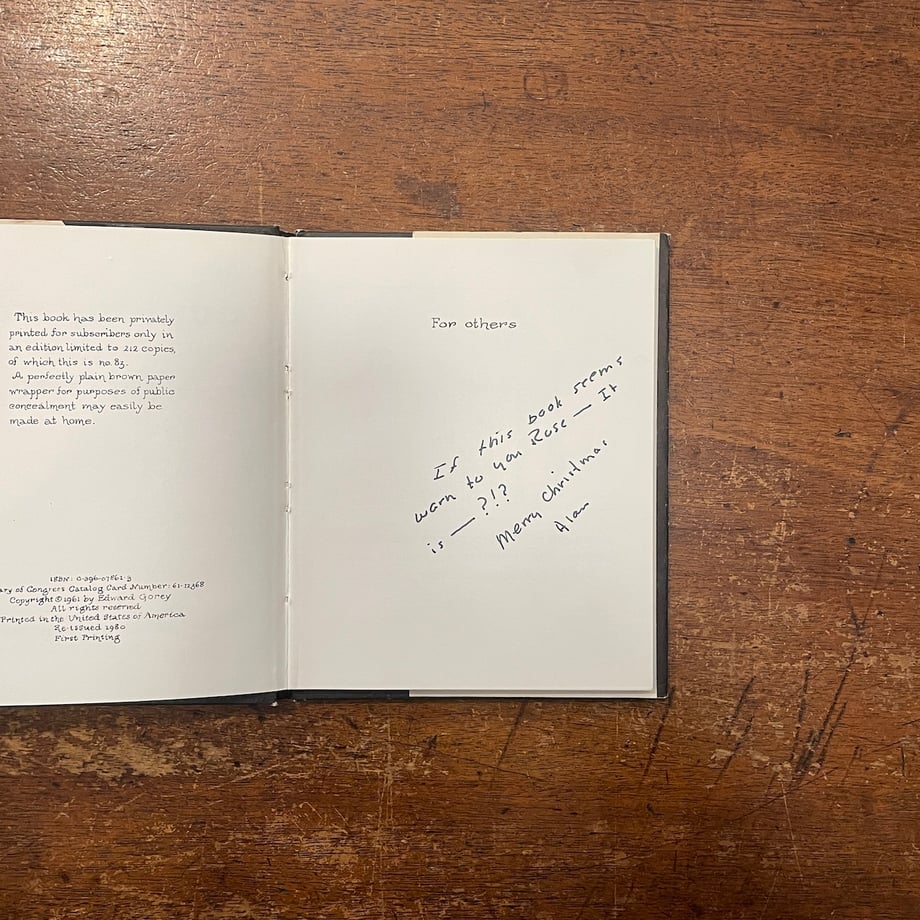 This book has been privately
printed for subscribers only in
an edition limited to 212 copies,
of which this is no. 83.
A perfectly plain brown paper
wrapper for purposes of public
concealment may easily be
made at home.
ISBN: 0-396-07861-3
ary of Congress Catalog Card Number: 61-12468
Copyright © 1961 by Edward Gorey
All rights reserved
Printed in the United States of America
Re-issued 1980
First Printing
For others
If this book seems
worn to you Rose — It
is — ?!?
Merry Christmas
Alan